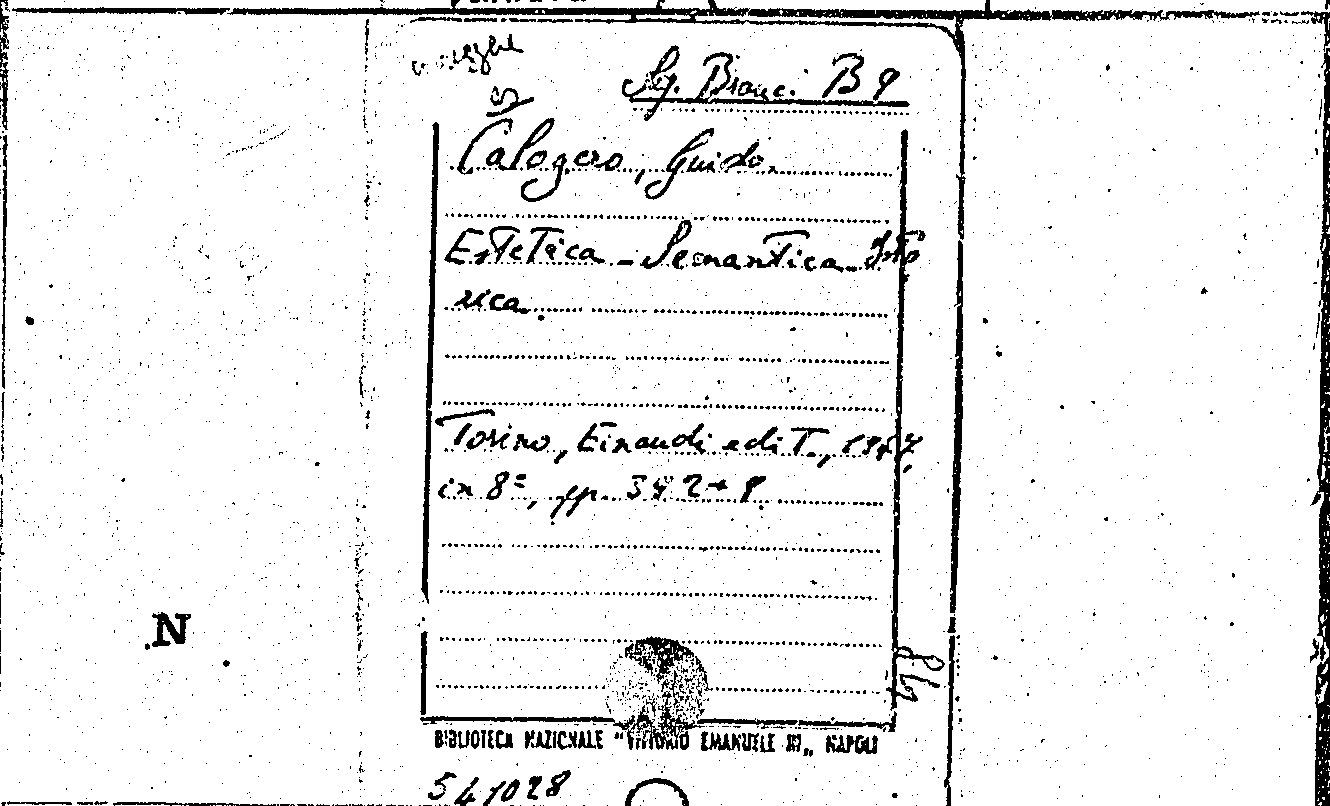 B 9
Calogero, Guido.
Estetica - Semantica - Isto
rica.
Torino, Einaudi edit., 1947,
in 8°, pp. 342 + 8
N
BIBLIOTECA NAZIONALE "VITTORIO EMANUELE III„ NAPOLI
541028